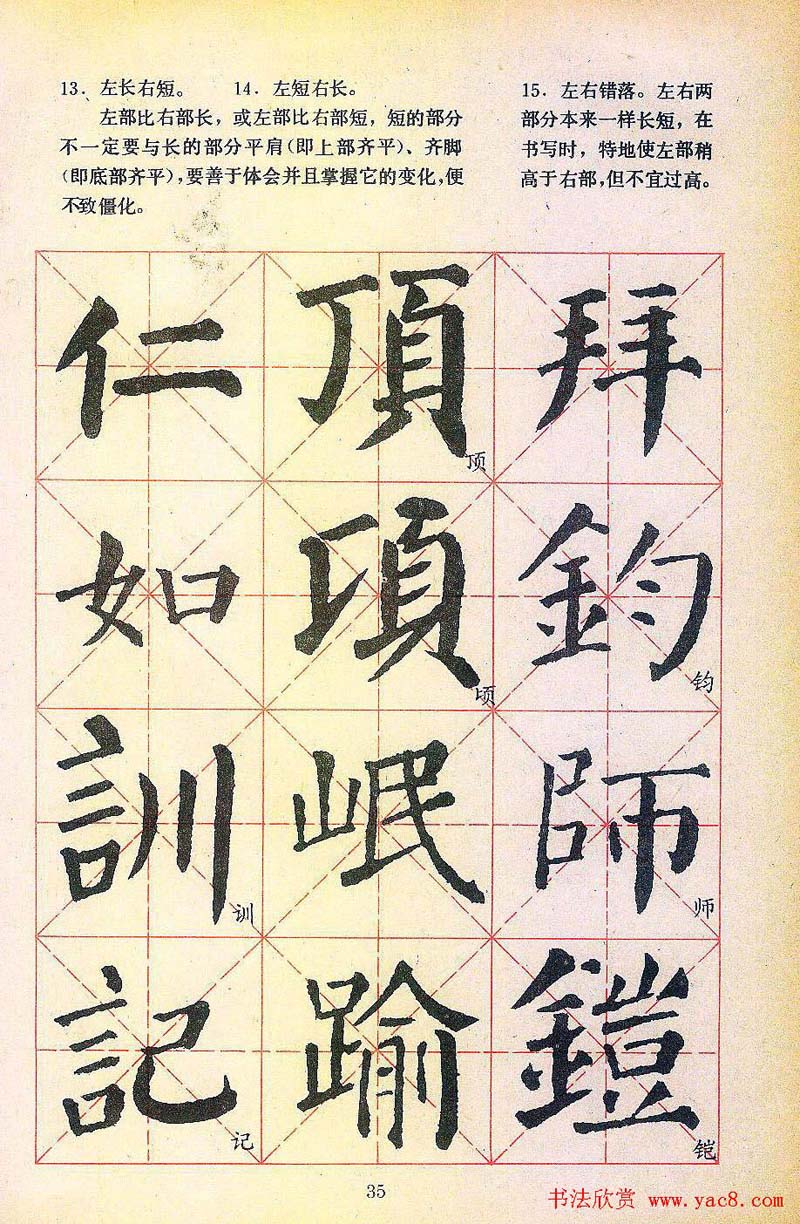 13．左长右短。 14．左短右长。
左部比右部长，或左部比右部短，短的部分
不一定要与长的部分平肩(即上部齐平)、齐脚
(即底部齐平)，要善于体会并且掌握它的变化，便
不致僵化。
15．左右错落。左右两
部分本来一样长短，在
书写时，特地使左部稍
高于右部，但不宜过高。
仁 頂 拜
顶
如 頃 鈞
顷 钧
訓 岷 師
训 师
記 踰 鎧
记 铠
35
书法欣赏 www.yac8.com